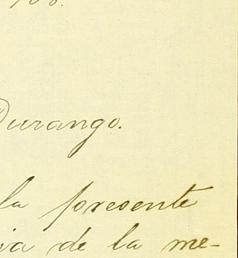 Durango.
la presente
ia de la me-